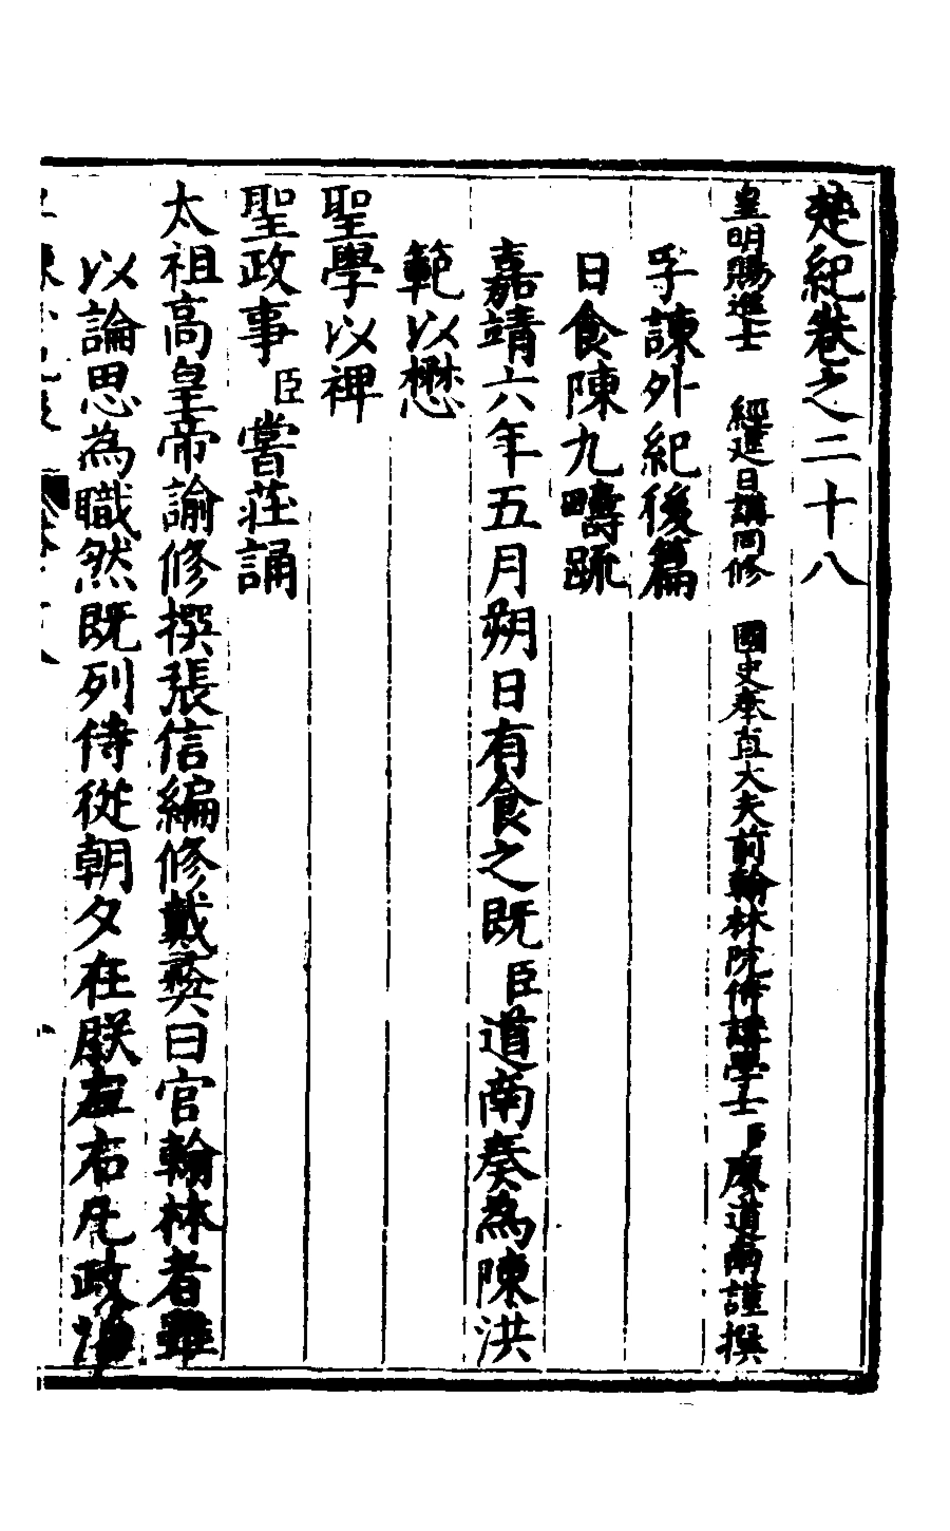 楚紀卷之二十八
皇明賜進士 經筵日講同修 國史奉直大夫前翰林院侍講學士臣廖道南謹撰
孚諫外紀後篇
日食陳九疇疏
嘉靖六年五月朔日有食之既臣道南奏為陳洪
範以懋
聖學以裨
聖政事臣嘗莊誦
太祖高皇帝諭修撰張信編修戴彝曰官翰林者雖
以論思為職然既列侍從朝夕在朕左右凡政治